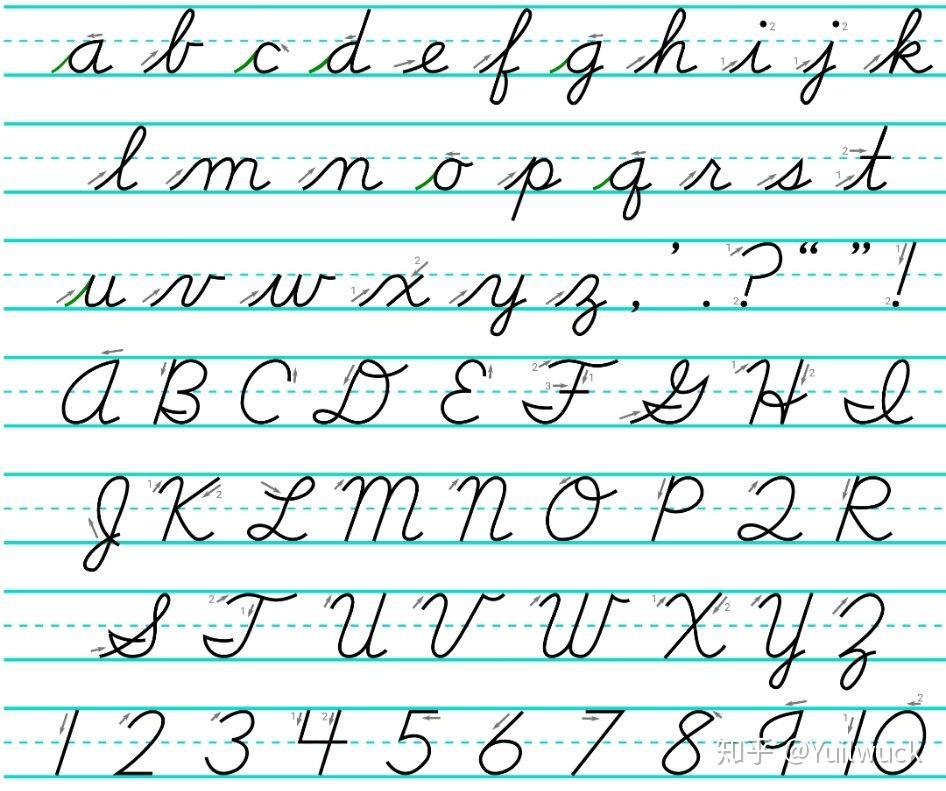 a b c d e f g h i j k
l m n o p q r s t
u v w x y z , ’ . ? “ ” !
A B C D E F G H I
J K L M N O P Q R
S T U V W X Y Z
1 2 3 4 5 6 7 8 9 10
知乎 @Yuliwuck